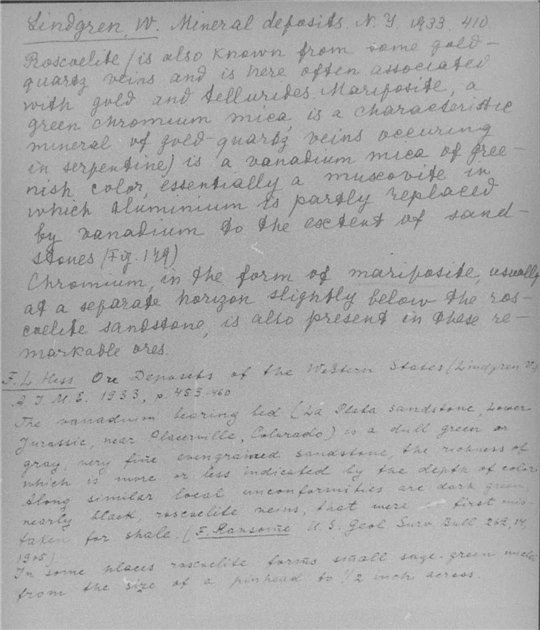 Lindgren, W. Mineral deposits N.Y. 1933. 410
Roscoelite (is also known from some gold-
quartz veins and is here often associated
with gold and tellurides. Mariposite, a
green chromium mica is a characteristic
mineral of gold-quartz veins occuring
in serpentine) is a vanadium mica of gree-
nish color, essentially a muscovite in
which aluminium is partly replaced
by vanadium to the extent of sand-
stones (Fig. 179)
Chromium, in the form of mariposite, usually
at a separate horizon slightly below the ros-
coelite sandstone, is also present in these re-
markable ores.
F. L. Hess Ore Deposits of the Western States (Lindgren V.)
A I. M. E. 1933, p. 455-460
The vanadium bearing bed (La Plata sandstone, Lower
Jurassic, near Placerville, Colorado) is a dull green or
gray, very fine evengrained sandstone, the richness of
which is more or less indicated by the depth of color.
Along similar local unconformities are dark green,
nearly black, roscoelite veins, that were first mis-
taken for shale. (F. Ransome U. S. Geol Surv. Bull. 262, 14,
1905)
In some places roscoelite forms small sage-green
from the size of a pinhead to 1/2 inch across.